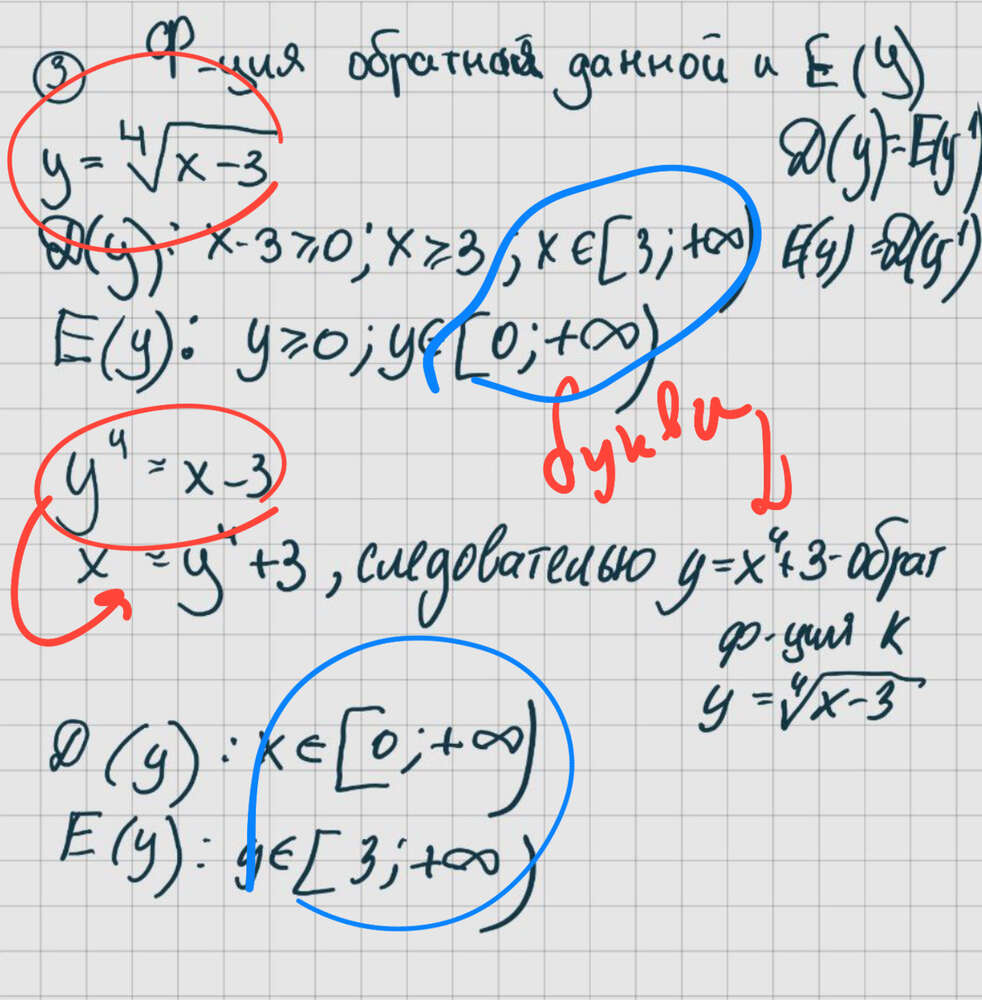 ③ ф-ция обратная данной и E(y)
y = ⁴√(x-3)
D(y)=E(y⁻¹)
D(y): x-3≥0; x≥3; x∈[3;+∞)
E(y)=D(y⁻¹)
E(y): y≥0; y∈[0;+∞)
буквы
y⁴ = x-3
x = y⁴+3, следовательно y=x⁴+3-обрат
ф-ция к
y = ⁴√(x-3)
D(y): x∈[0;+∞)
E(y): y∈[3;+∞)